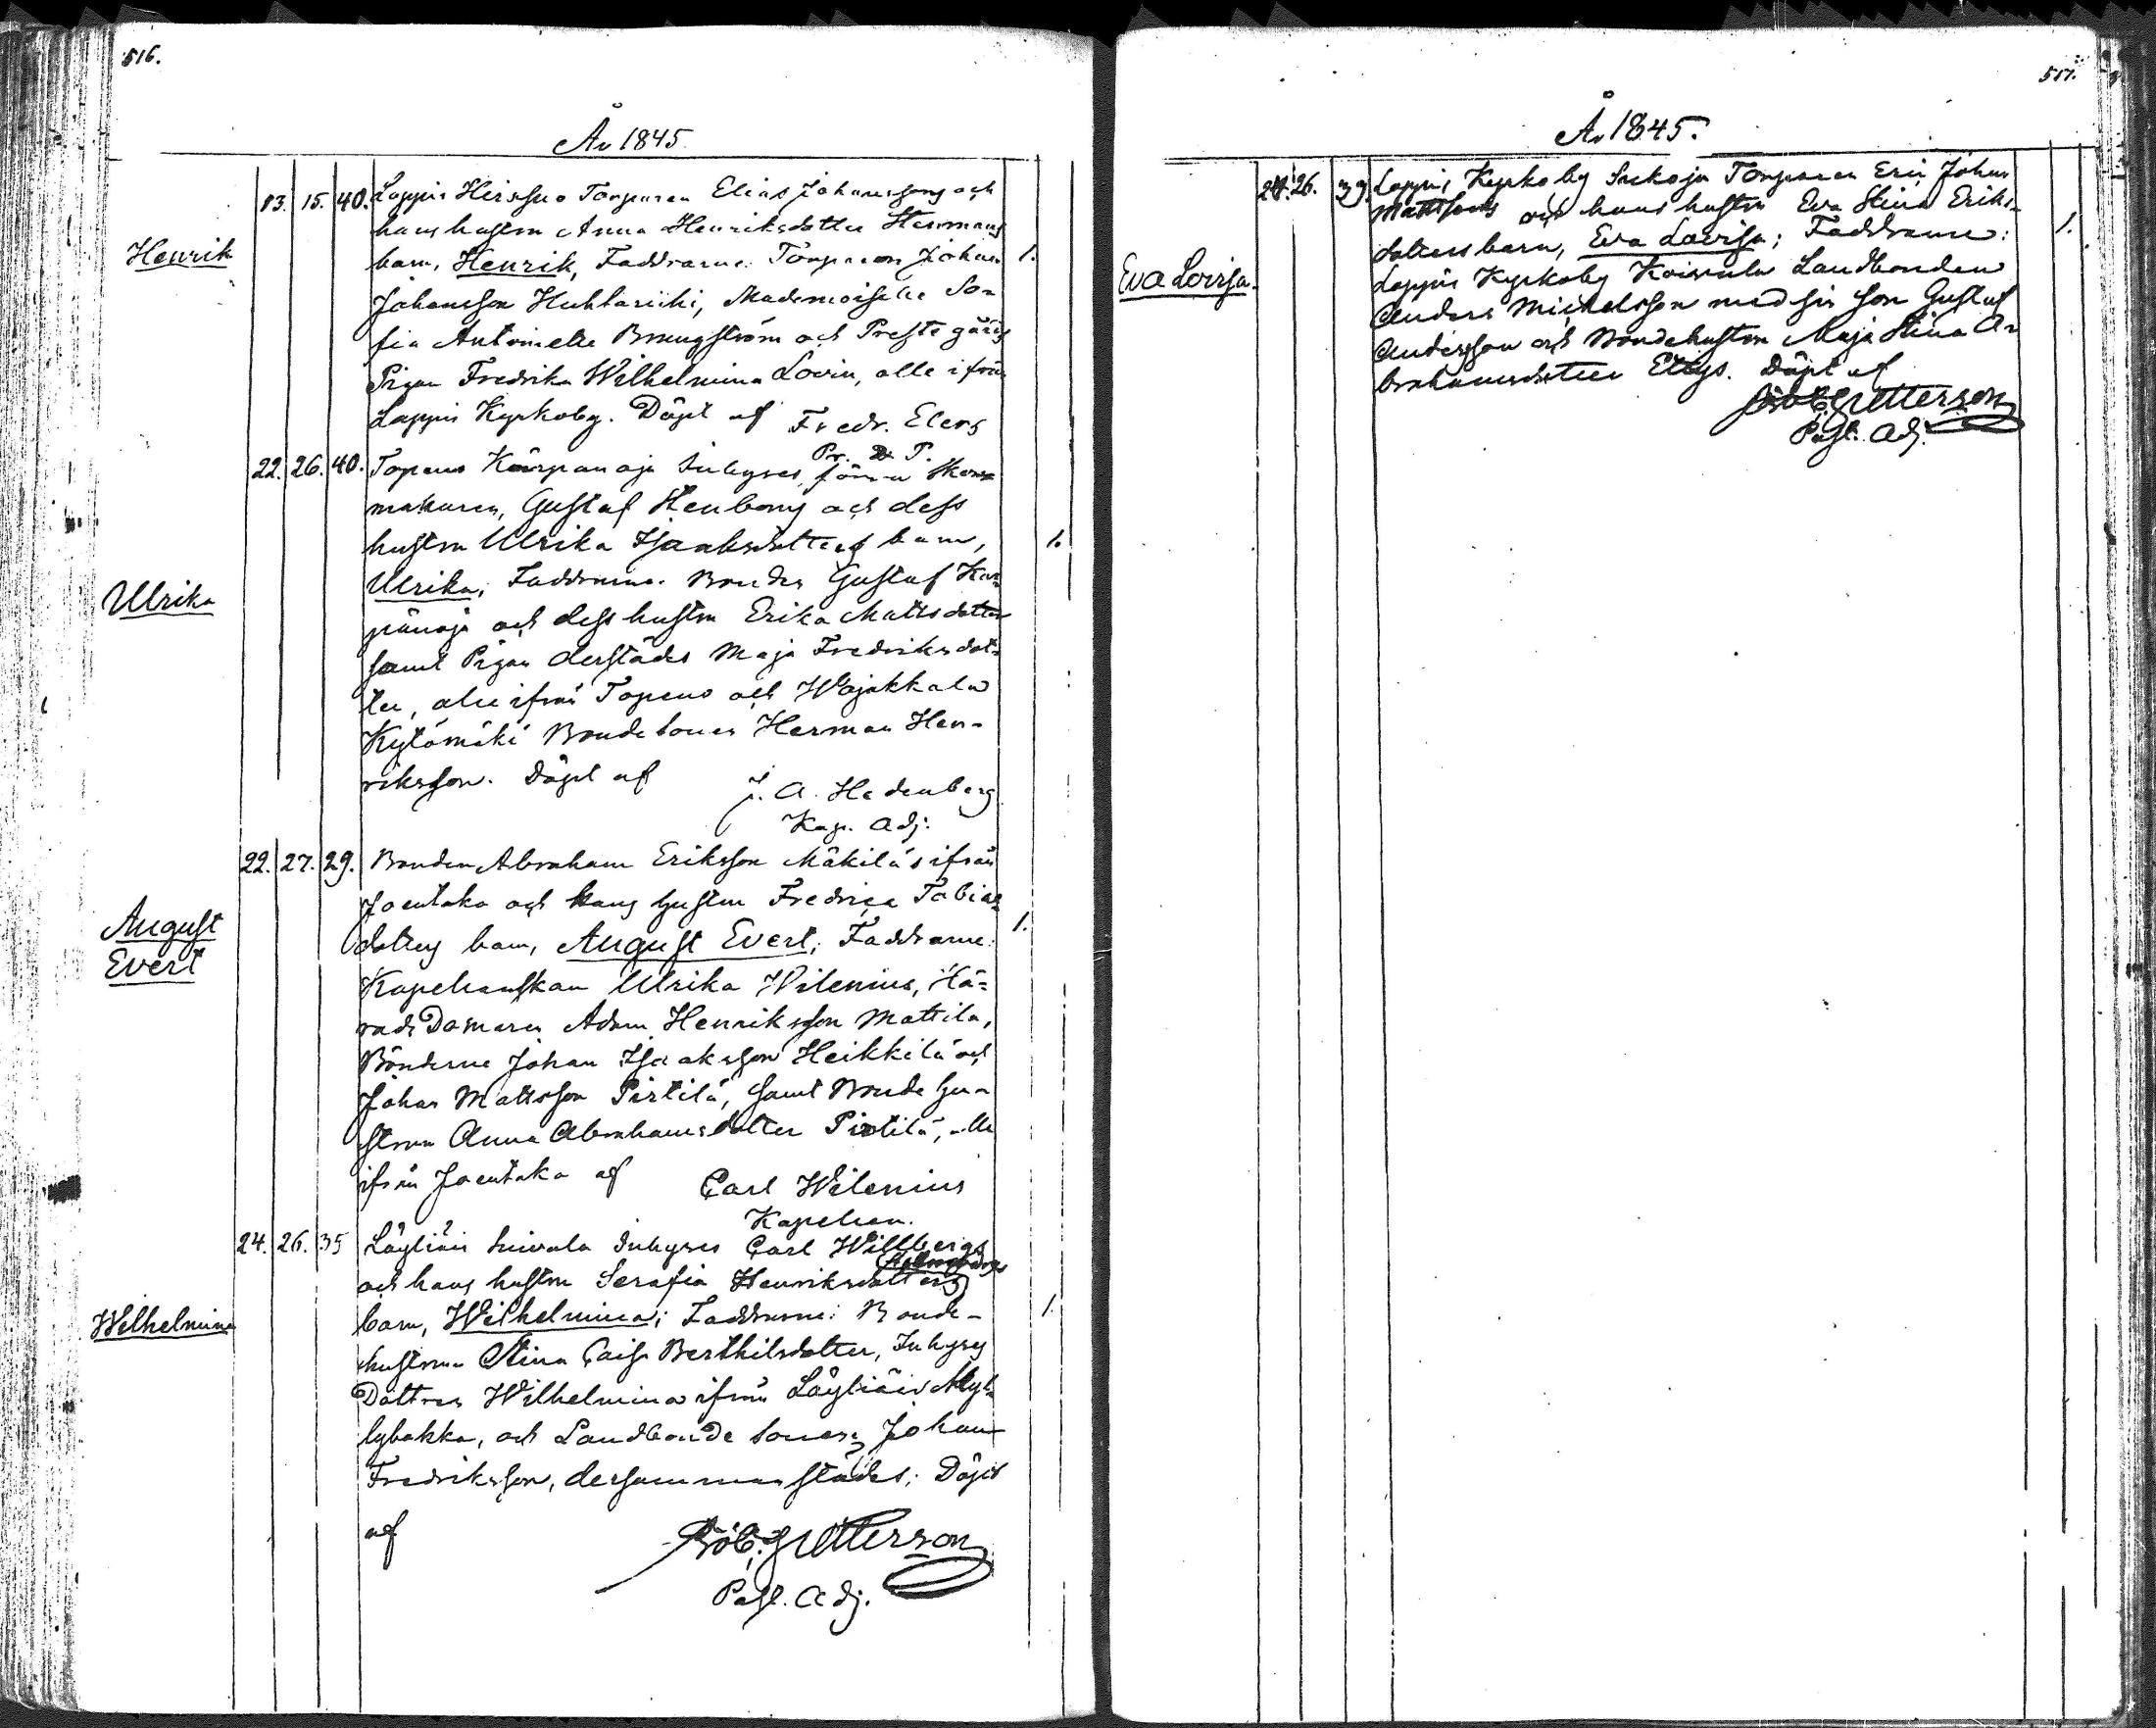 516.
År 1845.
13. 15. 40. Loppis Hirsjuo Torparen Elias Johanssons och
hans hustru Anna Henriksdotter Hermans
Henrik
barn, Henrik, Faddrarne: Torparen Johan 1.
Johansson Huhtariihi, Mademoiselle So=
fia Antoinette Brungström och Prestegårds
Pigan Fredrika Wilhelmina Lovin, alle ifrån
Loppis Kyrkoby. Döpt af Fredr. Elers
Pr. P.
22. 26. 40. Topeno Kärpänoja Inhyses, förra Skoma=
makaren, Gustaf Stenberg och dess
hustru Ulrika Isaaksdotters barn, 1.
Ulrika
Ulrika; Faddrarne. Bonden Gustaf Kär=
pänoja och dess hustru Erika Mattsdotter
samt Pigan derstädes Maja Fredriksdot=
ter, alle ifrån Topeno och Wojakkala
Kytömäki Bondesonen Herman Hen-
riksson. Döpt af J. A. Hedenberg
Kap. Adj.
22. 27. 29. Bonden Abraham Eriksson Mäkilä's ifrån
Joentaka och hans hustru Fredrica Tobias
August
Evert
dotters barn, August Evert; Faddrarne: 1.
Kapellanskan Ulrika Wilenius, Hä=
rads Domaren Adam Henriksson Mattila,
Bönderne Johan Isaaksson Heikkilä och
Johan Mattsson Pirtilä, samt Bonde hu-
strun Anna Abrahamsdotter Pirtilä, alle
ifrån Joentaka af Carl Wilenius
Kapellan.
24. 26. 35 Läyliäis Inhyses Carl Willbergs
och hans hustru Serafia Henriksdotters
Wilhelmina
barn, Wilhelmina; Faddrarne: Bonde- 1.
hustrun Stina Caisa Berthilsdotter, Inhyses
Dottren Wilhelmina ifrån Läyliäis Myl=
lybakka, och Landbonde sonen Johan
Fredriksson, dersammanstädes; Döpt
af Rob. Gutterson
Past. Adj.
517.
År 1845.
24. 26. 39. Loppis Kyrkoby Torparen Eric Johan
Mattssons och hans hustru Eva Stina Eriks=
Eva Lovisa.
dotters barn, Eva Lovisa; Faddrarne: 1.
Loppis Kyrkoby Landbonden
Anders Michelsson med sin son Gustaf
Andersson och Bondehustrun Maja Stina A=
brahamsdotter Ettys. Döpt af
Rob. Gutterson
Past. Adj.